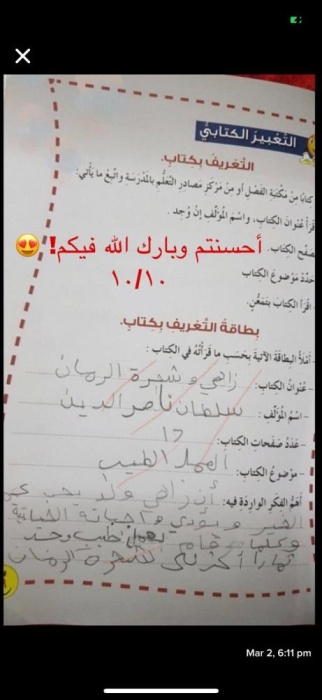 التعبير الكتابي
التعريف بكتاب.
كتابًا من مكتبة الفصل أو من مركز مصادر التعلم بالمدرسة واتبع ما يأتي:
قرأ عنوان الكتاب، واسم المؤلف إن وجد.
صفح الكتاب.
أحسنتم وبارك الله فيكم!
١٠/١٠
حدد موضوع الكتاب
- اقرأ الكتاب بتمعن.
بطاقة التعريف بكتاب.
- املأ البطاقة الآتية بحسب ما قرأته في الكتاب:
- عنوان الكتاب: زاهي وشجرة الرمان
- اسم المؤلف: سلطان ناصر الدين
- عدد صفحات الكتاب: 17
- موضوع الكتاب: العمل الطيب
أهم الفكر الواردة فيه: أن زاهي ولد يحب
الخير ويؤدي واجباته
Mar 2, 6:11 pm